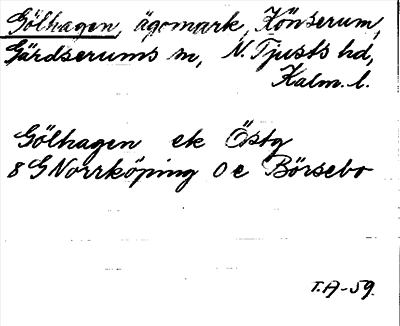 Gölhagen, ägomark, Könserum,
Gärdserums sn, N. Tjusts hd,
Kalm. l.
Gölhagen ek Östg
8 G Norrköping 0 e Börsebo
T.A-59.